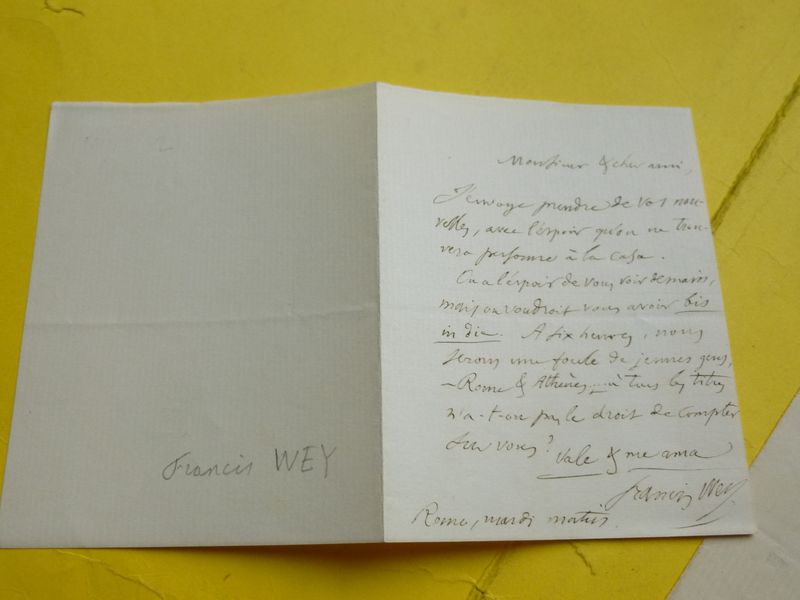 Francis WEY
Monsieur & cher ami,
J'envoye prendre de vos nou-
velles, avec l'espoir qu'on ne trou-
vera personne à la casa.
On a l'espoir de vous voir demain,
mais on voudroit vous avoir bis
in die. A six heures, nous
serons une foule de jeunes gens,
— Rome & Athènes — à tous les titres
n'a-t-on pas le droit de compter
sur vous?
Vale & me ama
Francis Wey
Rome, mardi matin.